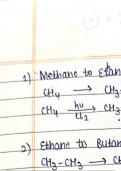 1) Methane to Etan
CH₄ ⟶ CH₃
CH₄ hν/Cl₂ ⟶ CH₃
2) Ethane to Butan
CH₃-CH₃ ⟶ C